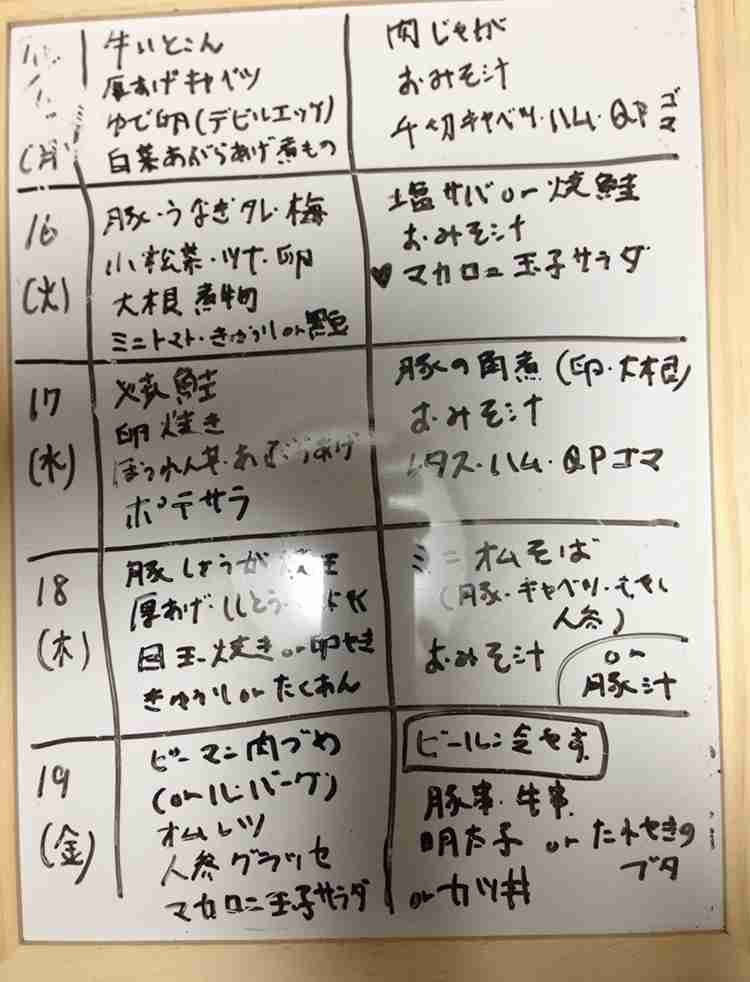 (月)
牛いとこん
厚あげキャベツ
ゆで卵(デビルエッグ)
白菜あぶらあげ煮もの
肉じゃが
おみそ汁
千切キャベツ・ハム・QPゴマ
16
(火)
豚・うなぎタレ・梅
小松菜・ツナ・卵
大根煮物
ミニトマト・きゅうりor黒豆
塩サバor焼鮭
おみそ汁
♥マカロニ玉子サラダ
17
(水)
焼鮭
卵焼き
ほうれん草・あぶらあげ
ポテサラ
豚の角煮(卵・大根)
おみそ汁
レタス・ハム・QPゴマ
18
(木)
豚しょうが
厚あげ・ししとう・
目玉焼きor卵やき
きゅうりorたくあん
ミニオムそば
(豚・キャベツ・もやし
人参)
おみそ汁
or
豚汁
19
(金)
ピーマン肉づめ
(orハンバーグ)
オムレツ
人参グラッセ
マカロニ玉子サラダ
ビール冷やす
明太子 or たれやきの
ブタ
orカツ丼